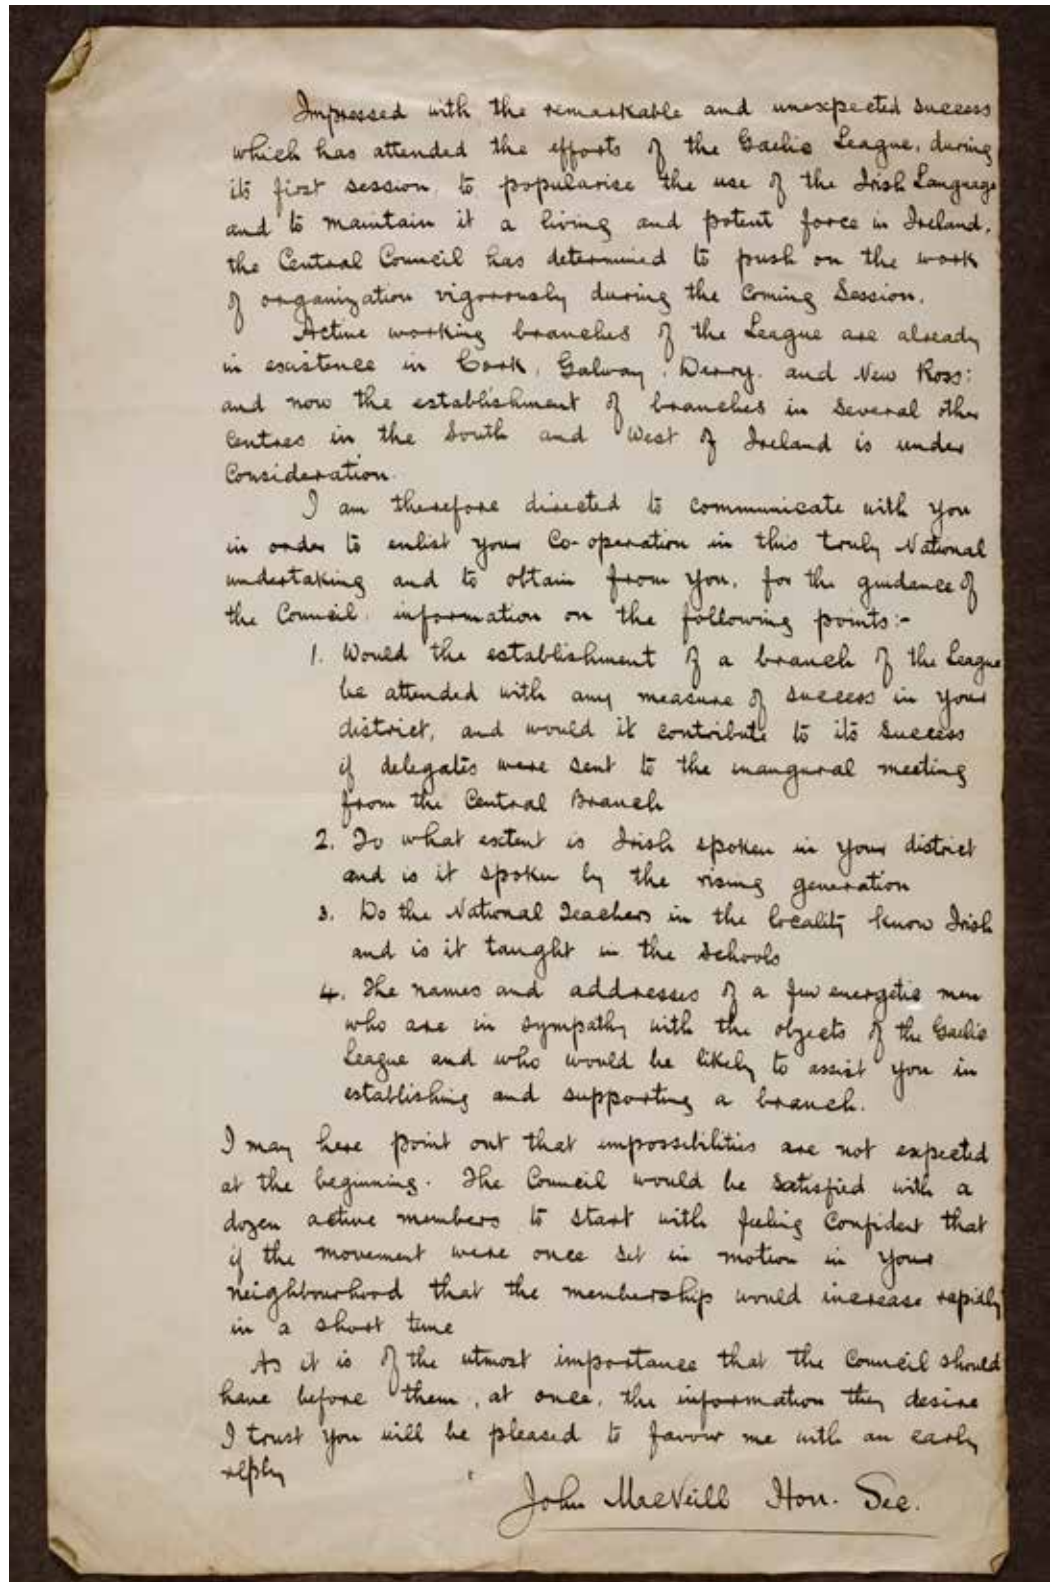 Impressed with the remarkable and unexpected success
which has attended the efforts of the Gaelic League, during
its first session, to popularise the use of the Irish Language
and to maintain it a living and potent force in Ireland,
the Central Council has determined to push on the work
of organization vigorously during the Coming Session.
Active working branches of the League are already
in existence in Cork, Galway, Derry, and New Ross:
and now the establishment of branches in several other
Centres in the South and West of Ireland is under
Consideration.
I am therefore directed to communicate with you
in order to enlist your Co-operation in this truly National
undertaking and to obtain from you, for the guidance of
the Council, information on the following points:-
1. Would the establishment of a branch of the League
be attended with any measure of success in your
district, and would it contribute to its success
if delegates were sent to the inaugural meeting
from the Central Branch
2. To what extent is Irish spoken in your district
and is it spoken by the rising generation
3. Do the National Teachers in the locality know Irish
and is it taught in the schools
4. The names and addresses of a few energetic men
who are in sympathy with the objects of the Gaelic
League and who would be likely to assist you in
establishing and supporting a branch.
I may here point out that impossibilities are not expected
at the beginning. The Council would be satisfied with a
dozen active members to start with feeling Confident that
if the movement were once set in motion in your
neighbourhood that the membership would increase rapidly
in a short time
As it is of the utmost importance that the Council should
have before them, at once, the information they desire
I trust you will be pleased to favour me with an early
reply
John MacNeill Hon. Sec.